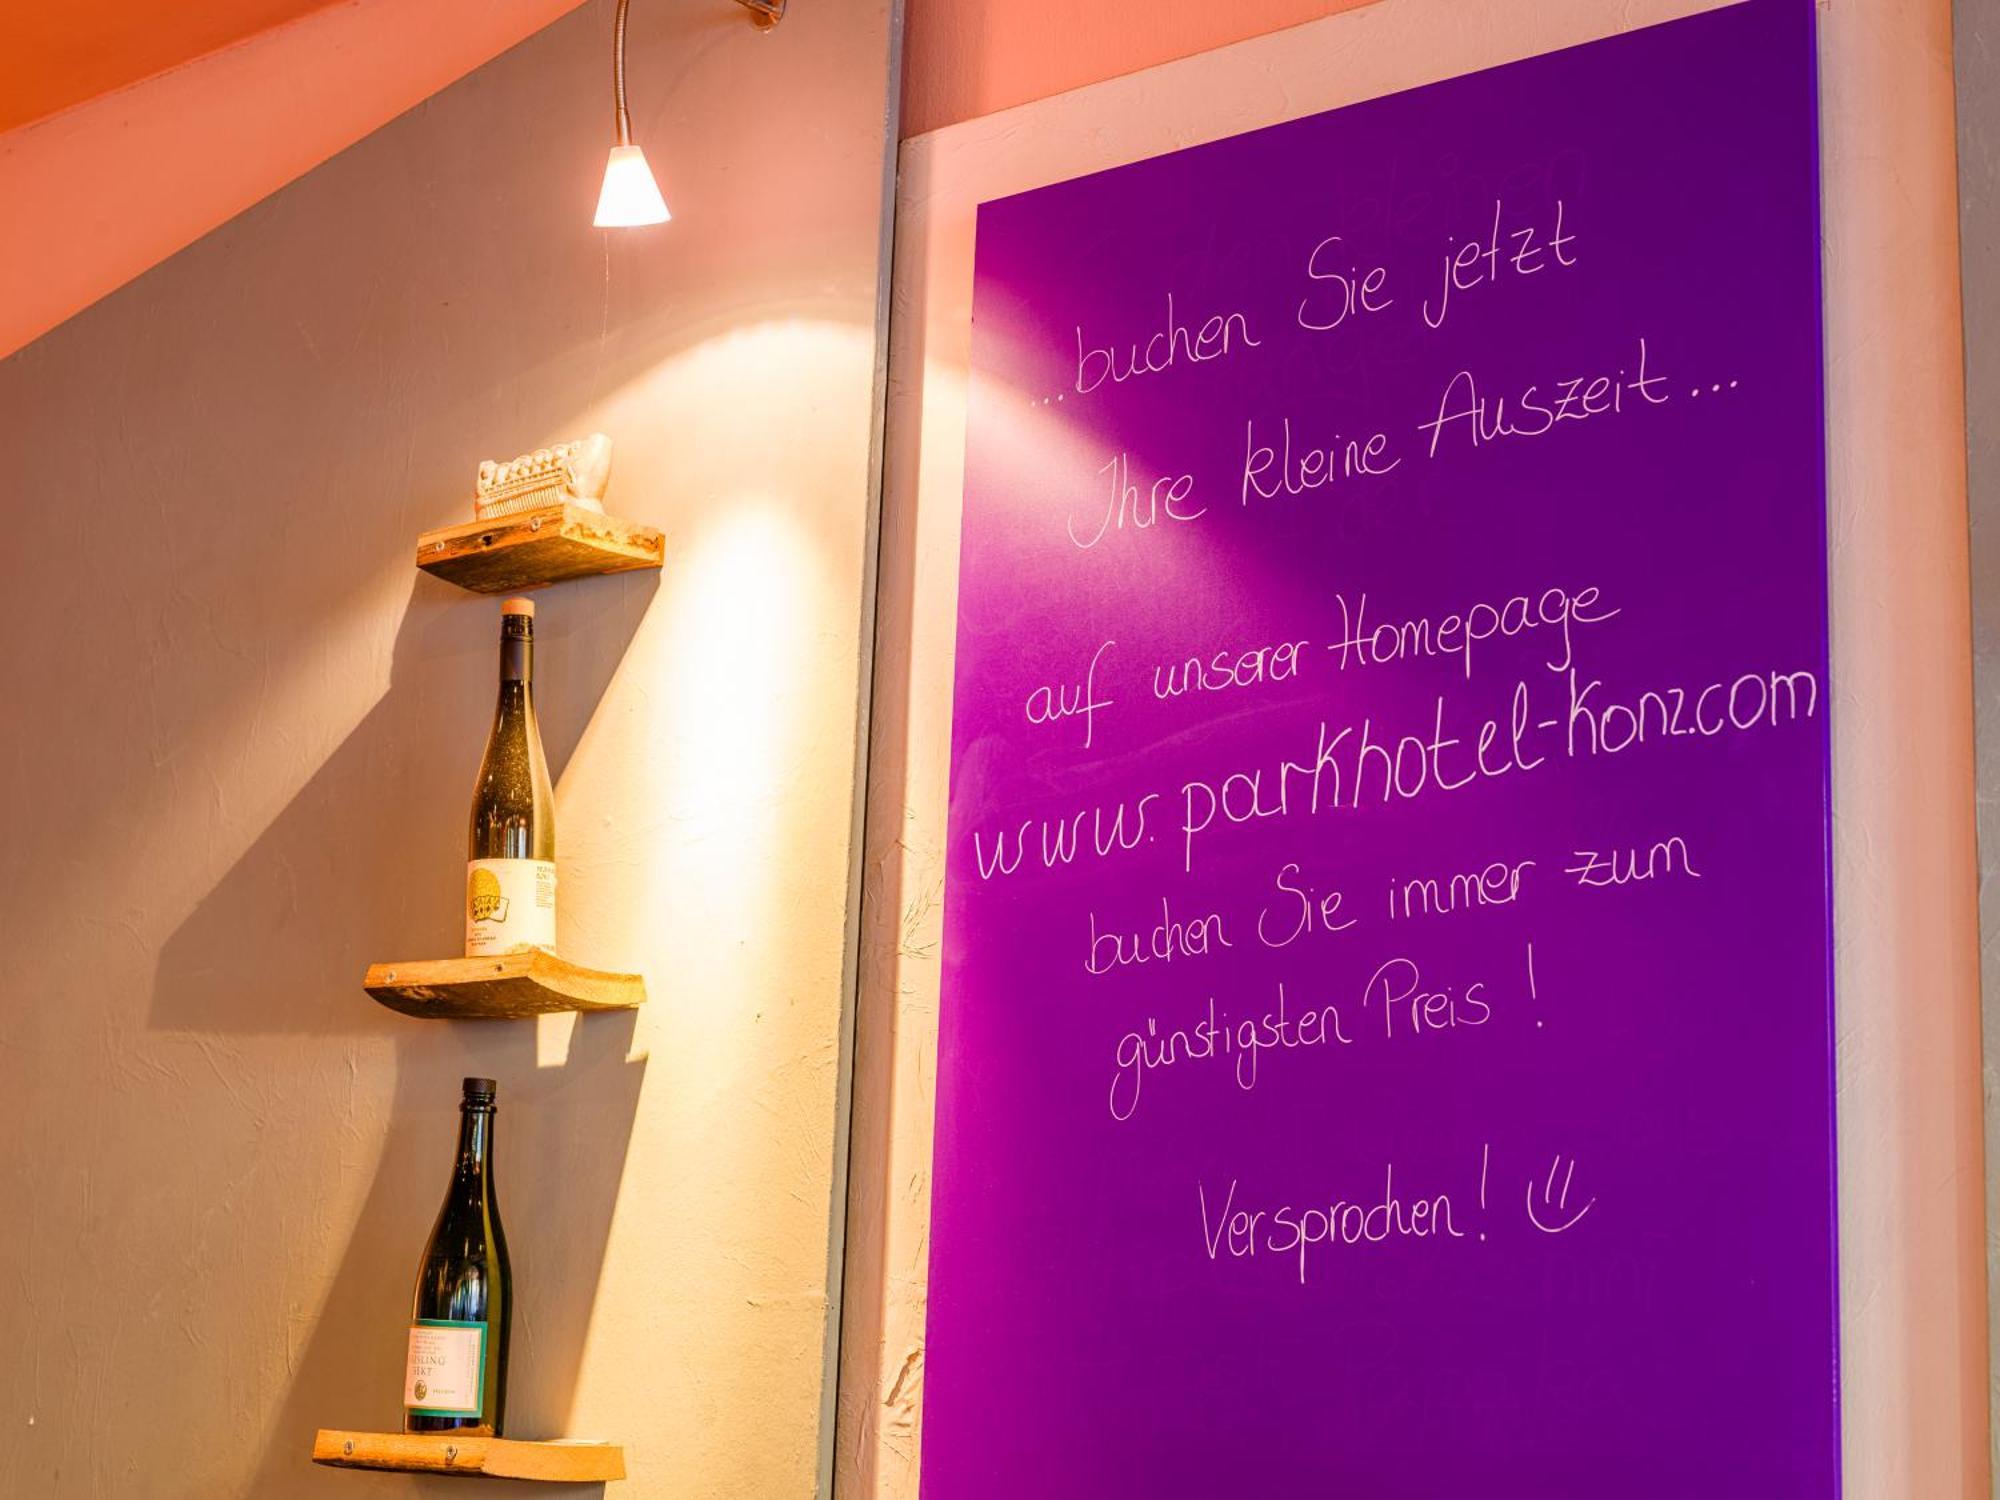 ...buchen Sie jetzt
Ihre kleine Auszeit...
auf unserer Homepage
www.parkhotel-konz.com
buchen Sie immer zum
günstigsten Preis!
Versprochen!
SEKT